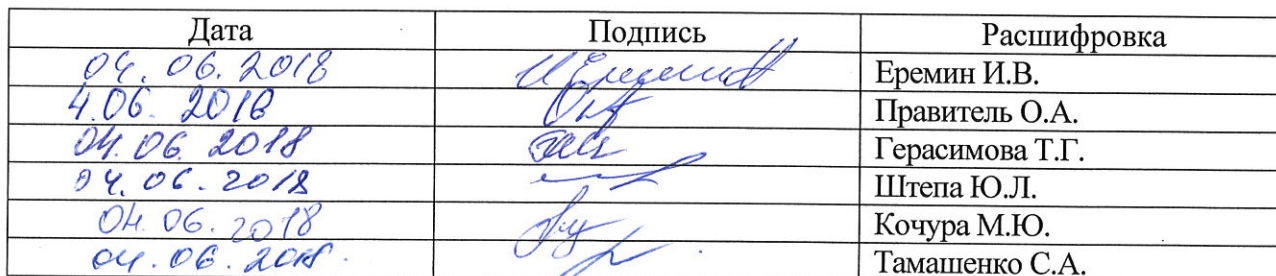 Дата Подпись Расшифровка
04.06.2018 И Еремин Еремин И.В.
4.06. 2018 Правитель О.А.
04.06.2018 Герасимова Т.Г.
04.06.2018 Штепа Ю.Л.
04.06.2018 Кочура М.Ю.
04.06.2018. Тамашенко С.А.